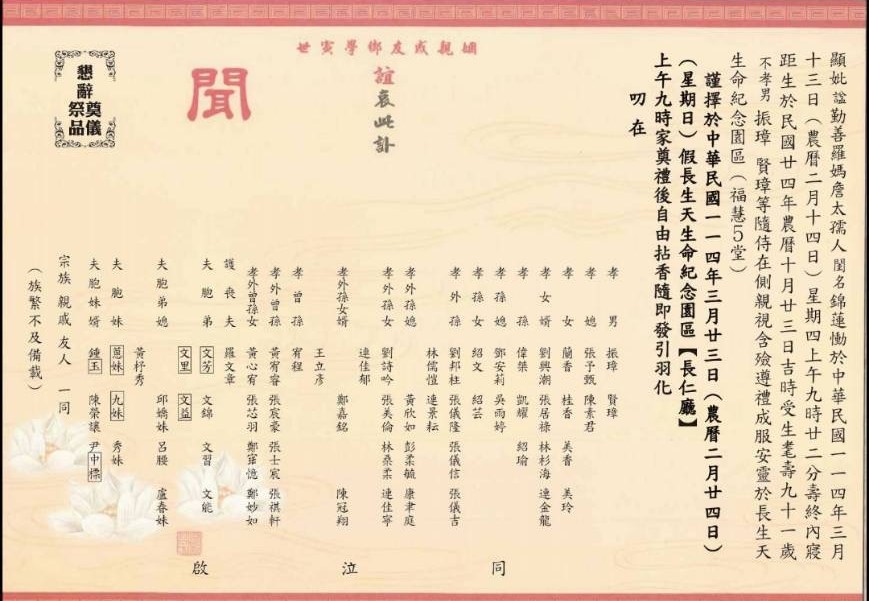 顯妣 諡勤善羅媽詹太孺人 閨名錦蓮慟於中華民國一一四年三月
十三日（農曆二月十四日）星期四上午九時廿二分壽終內寢
距生於民國廿四年農曆十月廿三日吉時受生耄壽九十一歲
不孝男 振璋 賢璋等隨侍在側親視含殮遵禮成服安靈於長生天
生命紀念園區（福慧5堂）
謹擇於中華民國一一四年三月廿三日（農曆二月廿四日）
（星期日）假長生天生命紀念園區【長仁廳】
上午九時家奠禮後自由拈香隨即發引羽化
叨在
姻親戚友鄉學寅世
誼哀此訃
聞
懇辭
奠儀
祭品
孝男 振璋 賢璋
孝媳 張予甄 陳素君
孝女 蘭香 桂香 美香 美玲
孝女婿 劉興潮 張居祿 林杉海 連金龍
孝孫 偉桀 凱耀 紹瑜
孝孫媳 鄧安莉 吳雨婷
孝孫女 紹文 紹芸
孝外孫 劉邦柱 張儀隆 張儀信 張儀吉
林儒愷 連景耘
孝外孫媳 黃欣如 彭柔毓 康聿庭
孝外孫女 劉詩吟 張美倫 林桑柔 連佳寧
連佳郁
孝外孫女婿 鄭嘉銘 陳冠翔
王立彥
孝曾孫 宥程
孝外曾孫 黃宥睿 張宸豪 張士宸 張祺軒
孝外曾孫女 黃心宥 張芯羽 鄭寗憶 鄭妙如
護喪夫 羅文章
夫胞弟 文芳 文錦 文習 文能
文里 文益
夫胞弟媳 邱嬌妹 呂腰 盧春妹
黃杼秀
夫胞妹 蔥妹 九妹 秀妹
夫胞妹婿 鍾玉 陳榮讓 尹中標
宗族親戚友人 一同
（族繁不及備載）
同泣啟